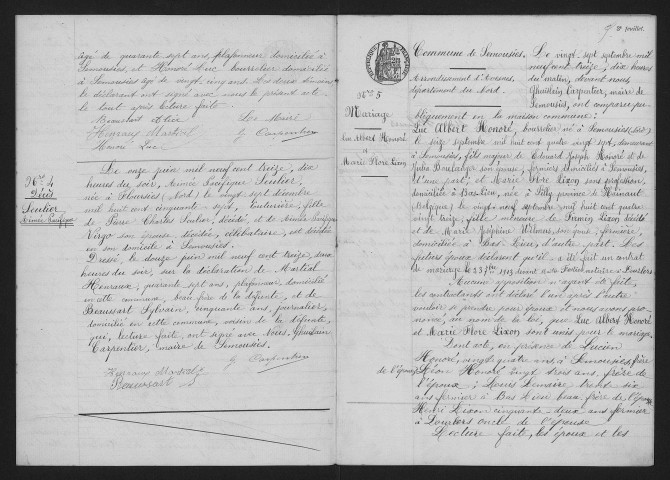 âgé de quarante sept ans, plafonneur domicilié à
Semousies, et Honoré Luc bourrelier domicilié
à Semousies âgé de vingt cinq ans. Les deux
le déclarant ont signé avec nous le présent acte
le tout après lecture faite.
Beaussart Le Maire
Henraux Martial G Carpentier
Honoré Luc
No. 4
Décès
Sentier
Aimée Eusèpe
Le onze juin mil neuf cent treize, dix
heures du soir, Aimée Sentier,
née à Floursies (Nord) le vingt sept décembre
mil huit cent cinquante - sept, fille
de Pierre Charles Sentier, décédé, et de Aimée
Virgo son épouse, décédée, célibataire, est décédée
en son domicile à Semousies.
Dressé, le douze juin mil neuf cent treize,
heures du soir, sur la déclaration de Martial
Henraux, quarante sept ans, plafonneur, domicilié
en cette commune, beau frère de la défunte, et de
Beaussart Sylvain, cinquante ans, journalier,
domicilié en cette commune, voisin de la défunte,
qui, lecture faite, ont signé avec Nous, Ghislain
Carpentier, maire de Semousies.
G Carpentier
Henraux Martial
Beaussart S
2 feuillet
No. 5
Mariage
Luc Albert Honoré
et
Marie Flore Lixon
Commune de Semousies.
Arrondissement d'Avesnes,
département du Nord.
Le vingt sept septembre mil
neuf cent treize, dix heures
du matin, devant nous
Ghislain Carpentier, maire de
Semousies, ont comparu pu-
bliquement en la maison commune :
Luc Albert Honoré, bourrelier né à Semousies (Nord)
le seize septembre mil huit cent quatre vingt sept, demeurant
à Semousies, fils majeur de Edouard Joseph Honoré et de
Julia Boulanger son épouse, fermiers domiciliés à Semousies,
d'une part ; et Marie Flore Lixon sans profession,
domiciliée à Bas-Lieu, née à Silly province de Hainaut
Belgique, le vingt neuf septembre mil huit cent quatre
vingt treize, fille mineure de Lixon décédé
et de Marie Joséphine Wilmus, son épouse, fermière,
domiciliée à Bas Lieu, d'autre part. Les
futurs époux déclarent qu'il a été fait un contrat
de mariage le 23 7bre 1913 devant notaire à
Aucune opposition n'ayant été faite,
les contractants ont déclaré l'un après l'autre
vouloir se prendre pour époux et nous avons pro-
noncé, au nom de la loi, que Luc Albert Honoré
et Marie Flore Lixon sont unis par le mariage.
Dont acte, en présence de Lucien
Honoré, vingt quatre ans, à Semousies, frère
de l'époux Léon Honoré vingt trois ans, frère de
l'époux ; Louis Lemaire trente six
ans fermier à Bas Lieu beau-frère de l'épouse
Henri Lixon cinquante - deux ans fermier
à oncle de l'épouse
Lecture faite, les époux et les